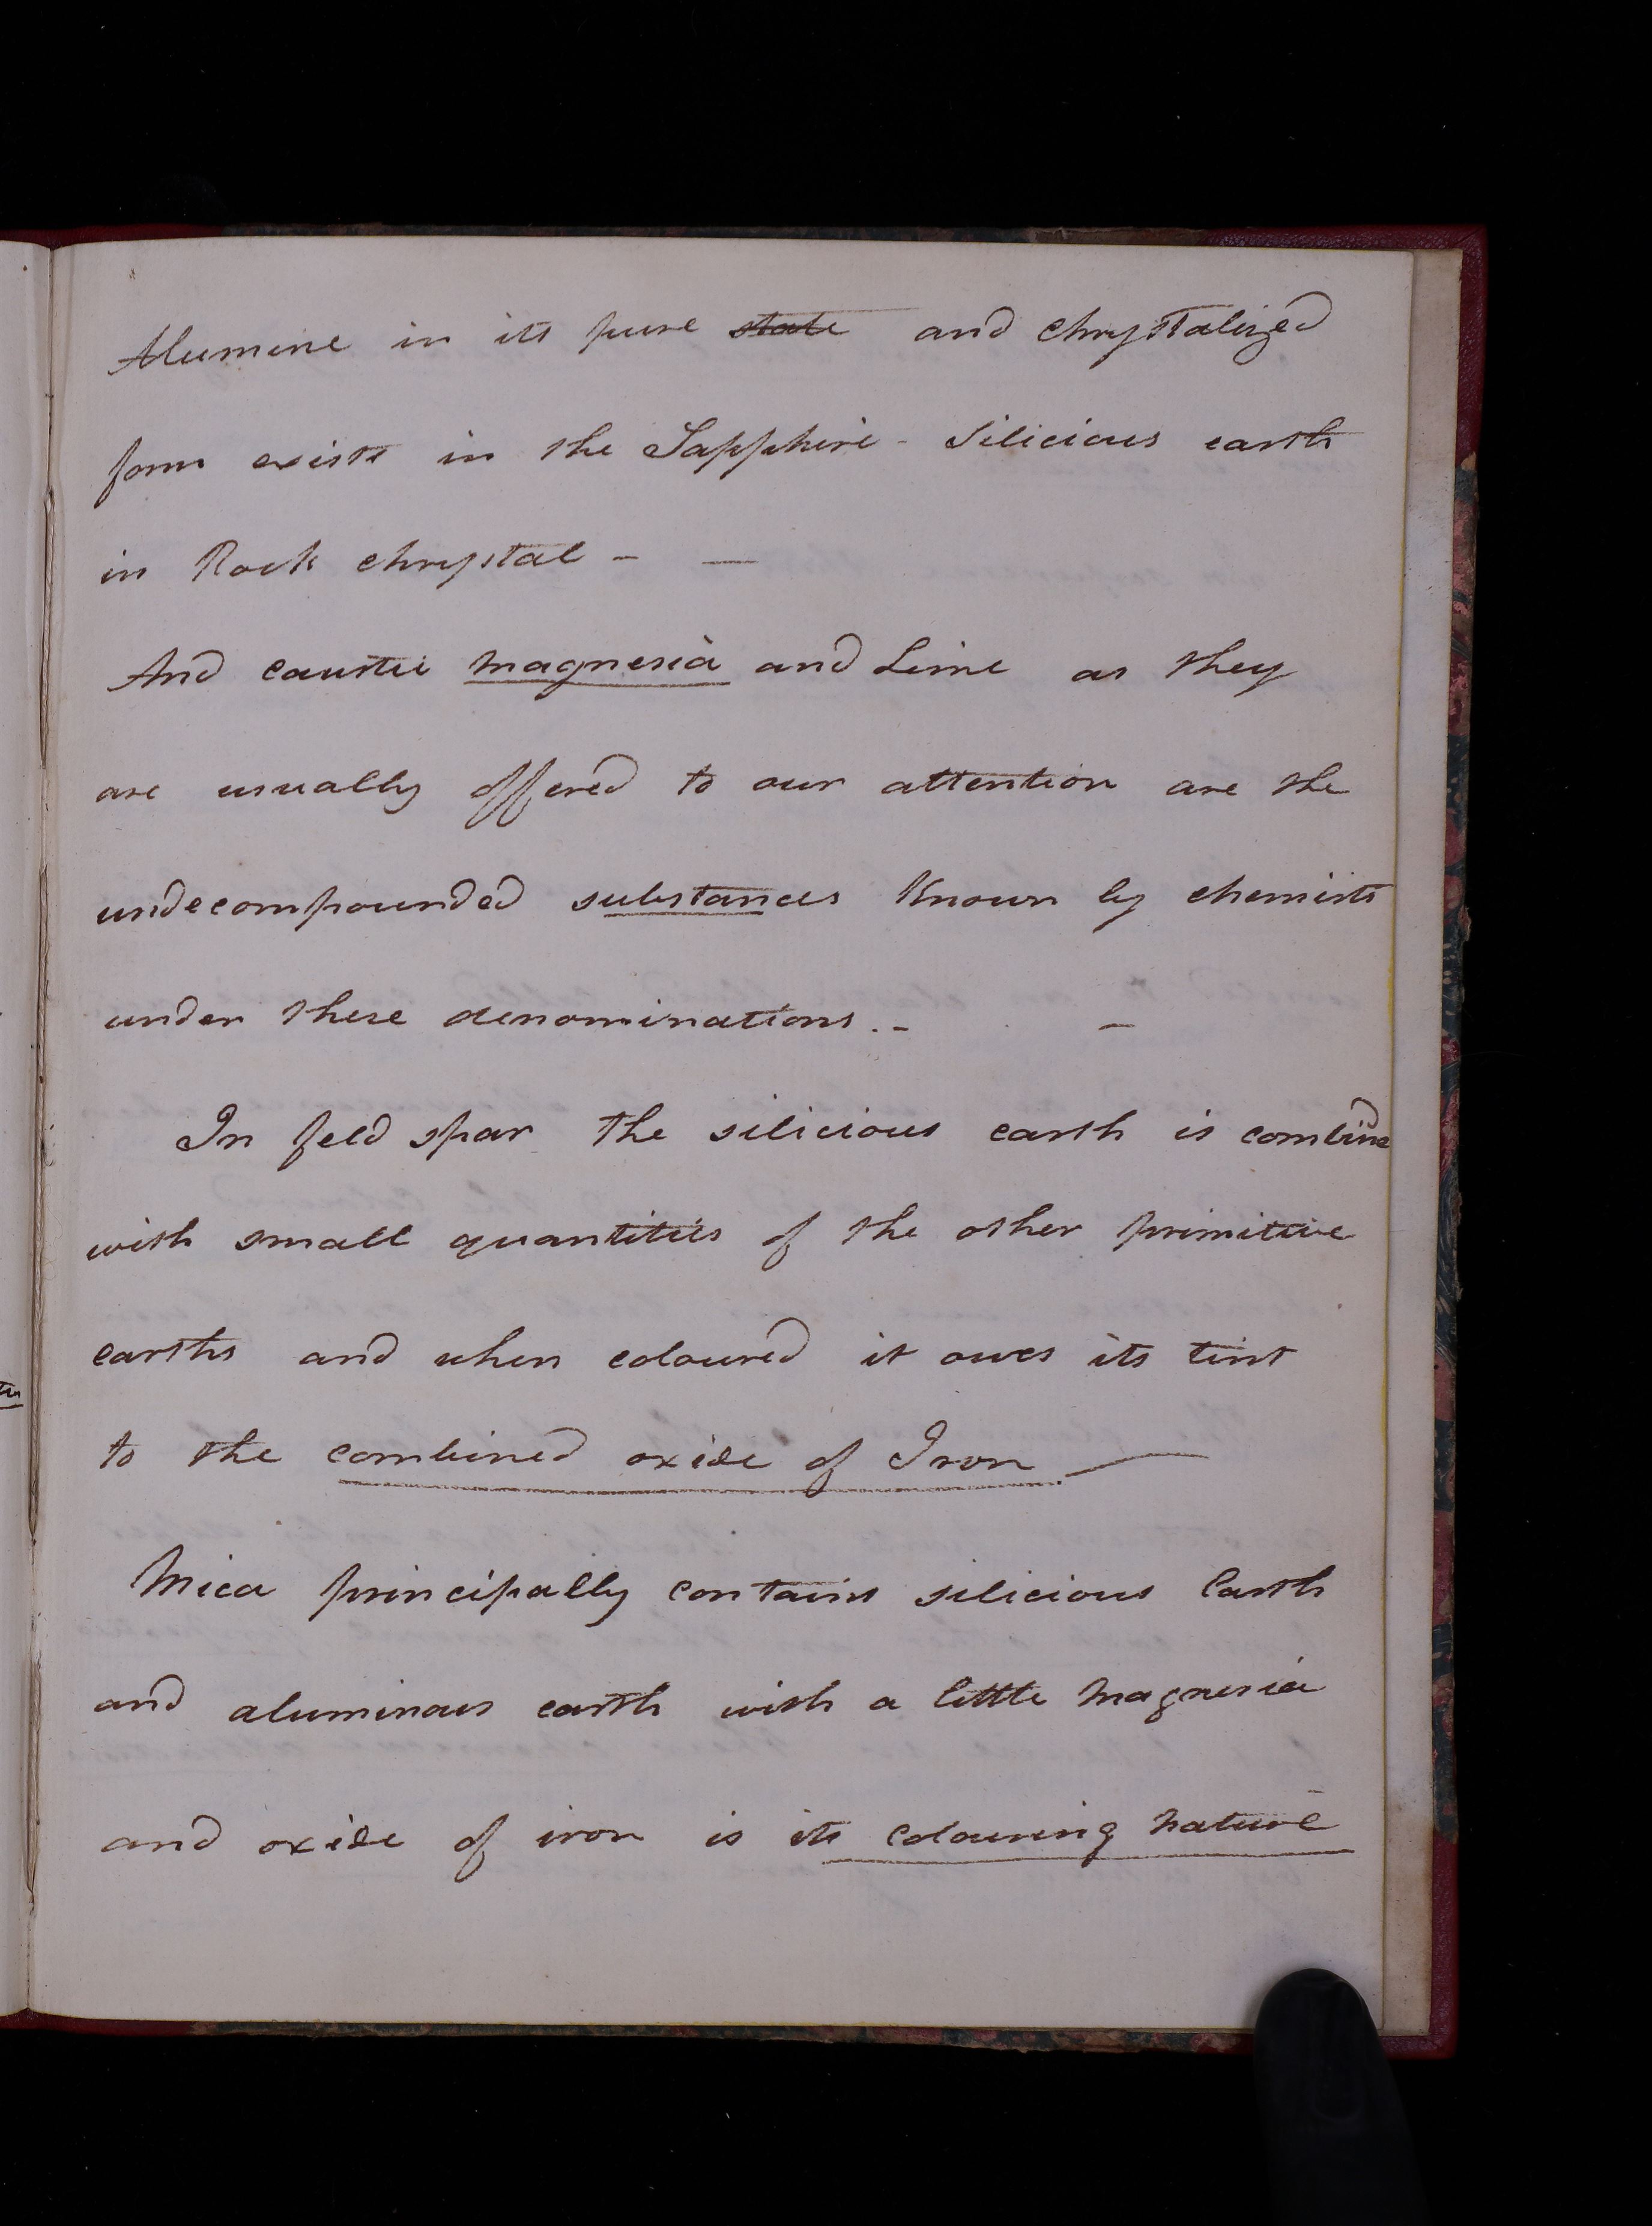 Alumine in its pure state and chrystalized
form exists in the Sapphire - Silicious earth
in Rock chrystal - —
And caustic magnesia and Lime as they
are usually offered to our attention are the
undecompounded substances known by chemists
under these denominations. - -
In feld spar the silicious earth is combined
with small quantities of the other primitive
earths and when coloured it owes its tint
to the combined oxide of Iron. —
Mica principally contains silicious Earth
and aluminous earth with a little magnesia
and oxide of iron is its colouring nature